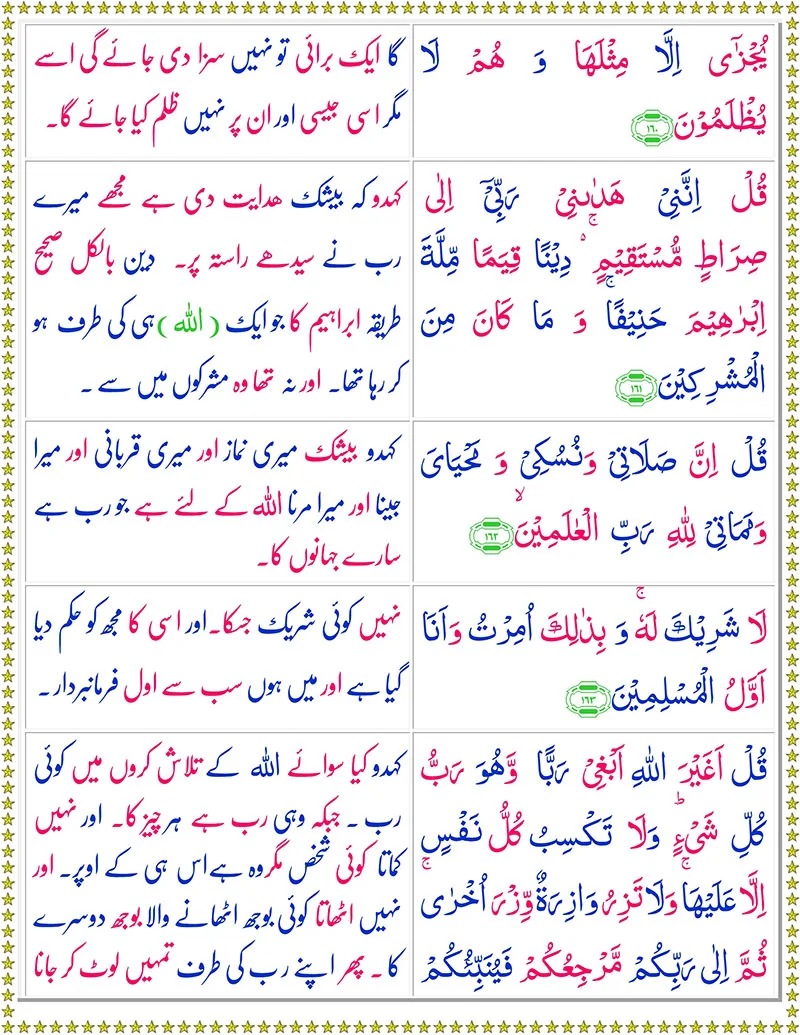 يُجْزٰٓى اِلَّا مِثْلَهَا وَ هُمْ لَا
يُظْلَمُوْنَ ١٦٠
گا ایک برائی تو نہیں سزا دی جائے گی اسے
مگر اسی جیسی اور ان پر نہیں ظلم کیا جائے گا۔
قُلْ اِنَّنِيْ هَدٰىنِيْ رَبِّيْٓ اِلٰى
صِرَاطٍ مُّسْتَقِيْمٍ ۚ دِيْنًا قِيَمًا مِّلَّةَ
اِبْرٰهِيْمَ حَنِيْفًا ۚ وَ مَا كَانَ مِنَ
الْمُشْرِكِيْنَ ١٦١
کہدو کہ بیشک ھدایت دی ہے مجھے میرے
رب نے سیدھے راستہ پر۔ دین بالکل صحیح
طریقہ ابراہیم کا جو ایک ( اللہ ) ہی کی طرف ہو
کر رہا تھا۔ اور نہ تھا وہ مشرکوں میں سے ۔
قُلْ اِنَّ صَلَاتِيْ وَنُسُكِيْ وَ مَحْيَايَ
وَمَمَاتِيْ لِلّٰهِ رَبِّ الْعٰلَمِيْنَ ۙ ١٦٢
کہدو بیشک میری نماز اور میری قربانی اور میرا
جینا اور میرا مرنا اللہ کے لئے ہے جو رب ہے
سارے جہانوں کا۔
لَا شَرِيْكَ لَهٗ ۚ وَ بِذٰلِكَ اُمِرْتُ وَاَنَا
اَوَّلُ الْمُسْلِمِيْنَ ١٦٣
نہیں کوئی شریک جسکا۔ اور اسی کا مجھ کو حکم دیا
گیا ہے اور میں ہوں سب سے اول فرمانبردار۔
قُلْ اَغَيْرَ اللّٰهِ اَبْغِيْ رَبًّا وَّهُوَ رَبُّ
كُلِّ شَيْءٍ ؕ وَلَا تَكْسِبُ كُلُّ نَفْسٍ
اِلَّا عَلَيْهَا ۚ وَلَا تَزِرُ وَازِرَةٌ وِّزْرَ اُخْرٰى ۚ
ثُمَّ اِلٰى رَبِّكُمْ مَّرْجِعُكُمْ فَيُنَبِّئُكُمْ
کہدو کیا سوائے اللہ کے تلاش کروں میں کوئی
رب ۔ جبکہ وہی رب ہے ہر چیز کا۔ اور نہیں
کماتا کوئی شخص مگر وہ ہے اس ہی کے اوپر۔ اور
نہیں اٹھاتا کوئی بوجھ اٹھانے والا بوجھ دوسرے
کا ۔ پھر اپنے رب کی طرف تمہیں لوٹ کر جانا